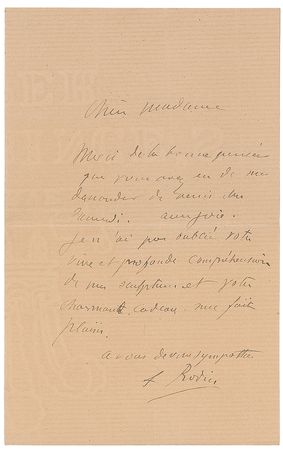 Chère Madame
Merci de la bonne pensée
que vous avez eu de me
demander de venir
Samedi.
je n'ai pas oublié votre
vive et profonde compréhension
de ma sculpture et votre
charmant cadeau me fait
plaisir.
a vous de vive sympathie
A Rodin